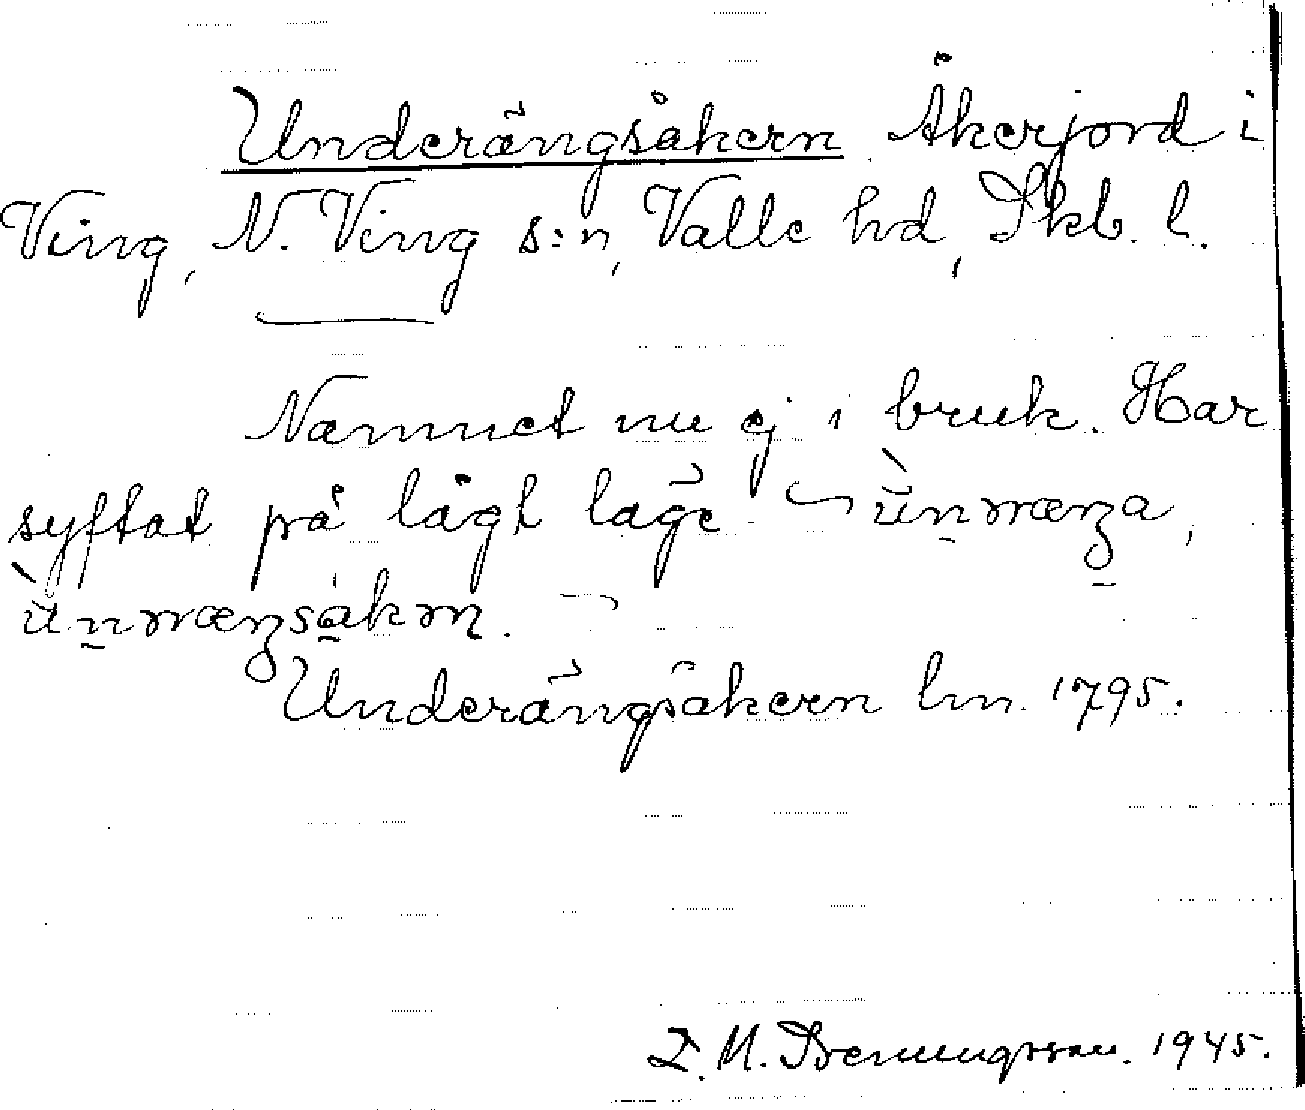 Underängsåkern Åkerjord i
Ving, N. Ving s:n, Valle hd, Skb. l.
Namnet nu ej i bruk. Har
syftat på lågt läge. ùnnræŋa,
ùnnræŋsåkɳ.
Underängsåkern lm 1795.
1945.